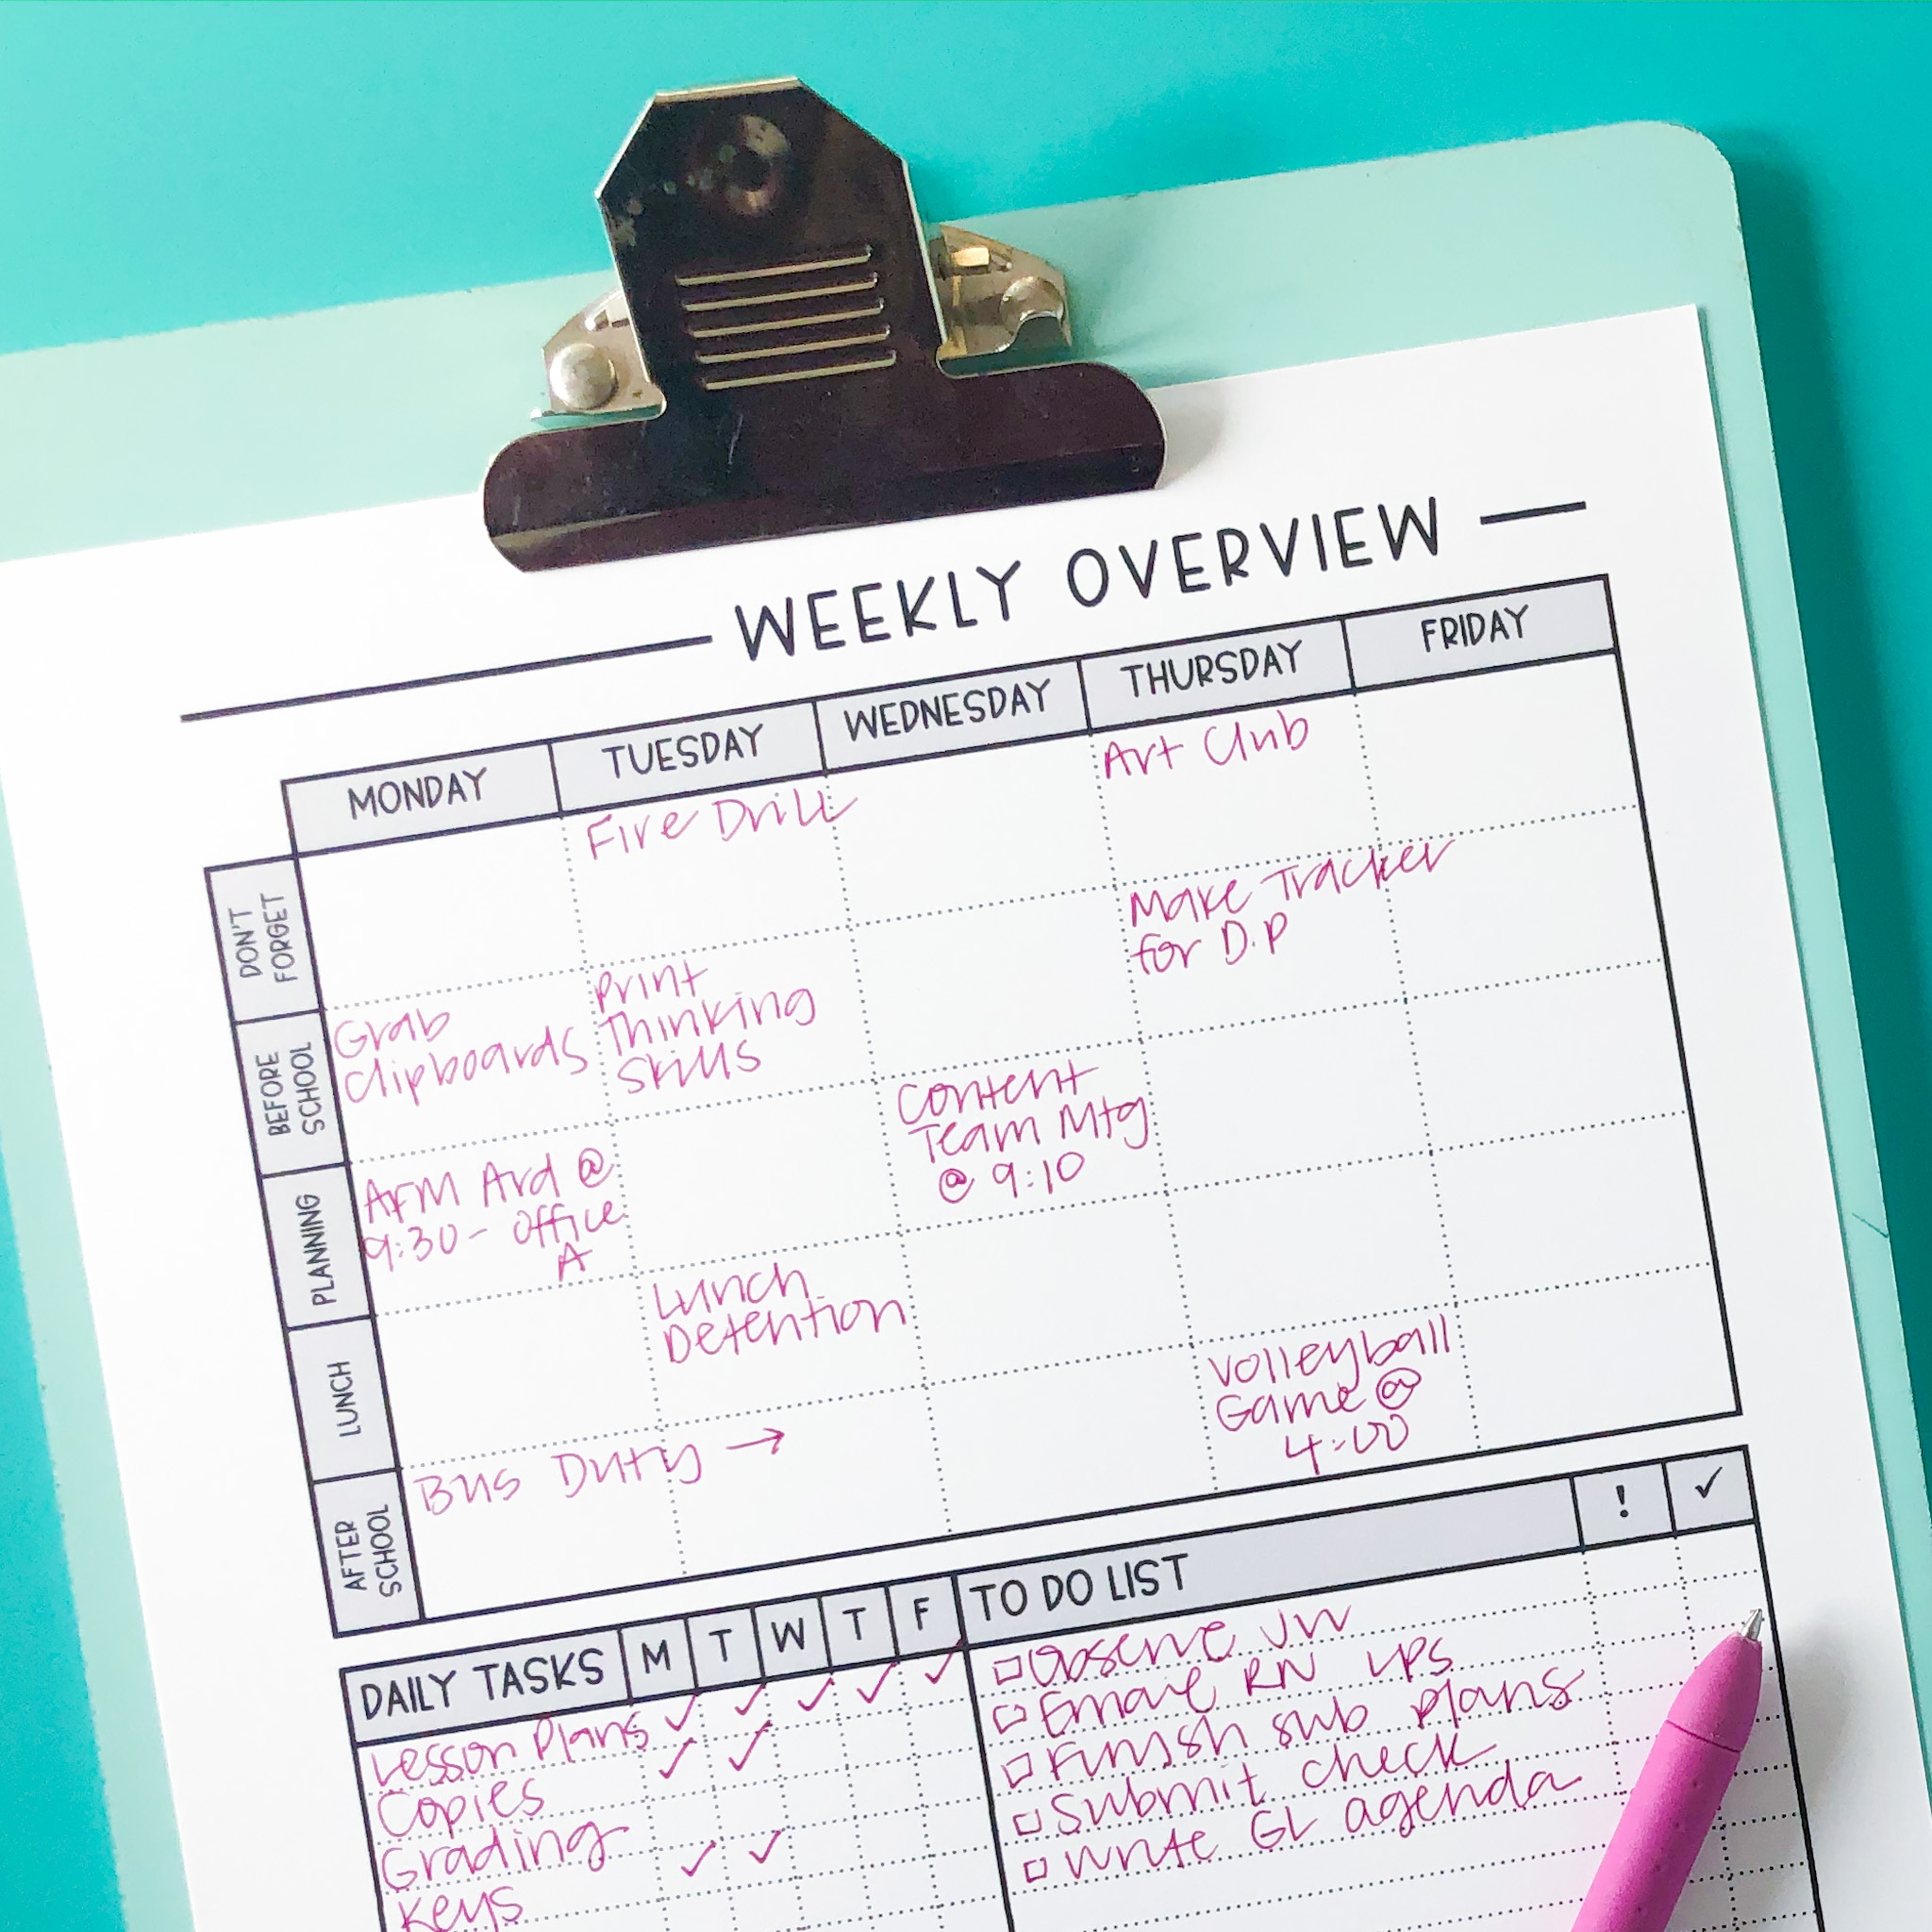 WEEKLY OVERVIEW
MONDAY TUESDAY WEDNESDAY THURSDAY FRIDAY
DON'T
FORGET
Fire Drill
Art Club
BEFORE
SCHOOL
Grab
Clipboards
Print
Thinking
Skills
Make Tracker
for D.P
PLANNING
AFM Ard @
9:30 - Office
A
Content
Team Mtg
@ 9:10
LUNCH
Lunch
Detention
AFTER
SCHOOL
Bus Duty →
Volleyball
Game @
4:00
DAILY TASKS M T W T F
Lesson Plans ✓ ✓ ✓ ✓ ✓
Copies ✓ ✓
Grading
Keys ✓ ✓
TO DO LIST ! ✓
Observe JW
Email RN LPS
Finish sub plans
Submit check
Write GL agenda